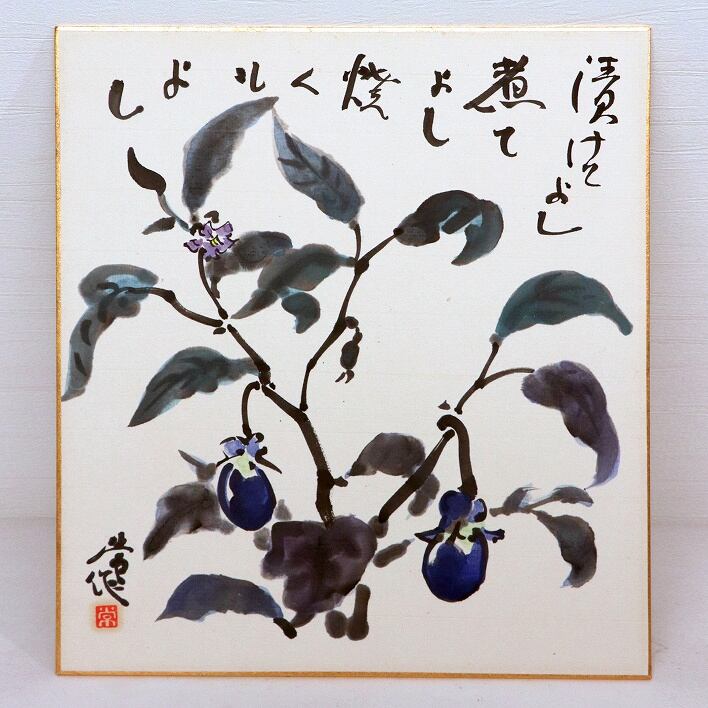 漬けてよし
煮て
よし
焼くもよし
常作
常